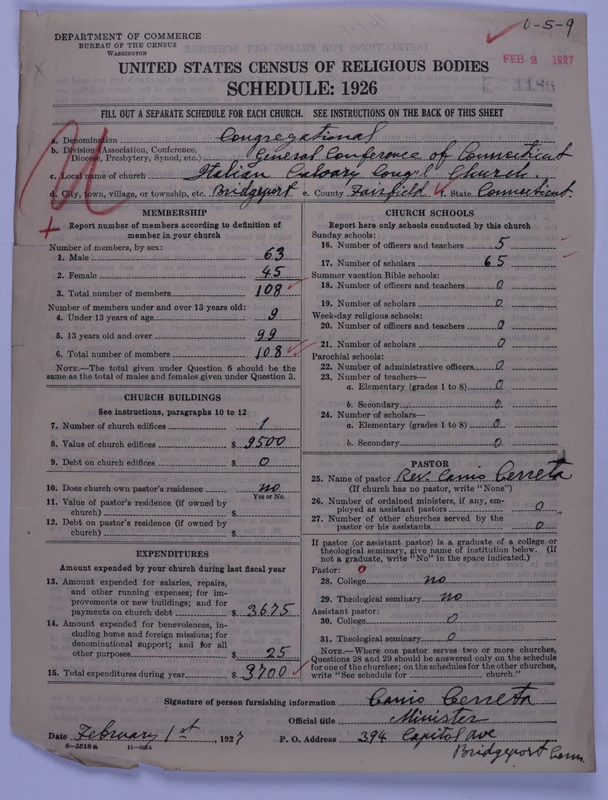 0-5-9
DEPARTMENT OF COMMERCE
BUREAU OF THE CENSUS
WASHINGTON
FEB 2 1927
1186
UNITED STATES CENSUS OF RELIGIOUS BODIES
SCHEDULE: 1926
FILL OUT A SEPARATE SCHEDULE FOR EACH CHURCH. SEE INSTRUCTIONS ON THE BACK OF THIS SHEET
a. Denomination Congregational
b. Division (Association, Conference, Diocese, Presbytery, Synod, etc.) General Conference of Connecticut
c. Local name of church Italian Calvary Cong'l Church.
d. City, town, village, or township, etc. Bridgeport e. County Fairfield f. State Connecticut.
MEMBERSHIP
Report number of members according to definition of
member in your church
Number of members, by sex:
1. Male 63
2. Female 45
3. Total number of members 108
Number of members under and over 13 years old:
4. Under 13 years of age 9
5. 13 years old and over 99
6. Total number of members 108
NOTE.—The total given under Question 6 should be the
same as the total of males and females given under Question 3.
CHURCH BUILDINGS
See instructions, paragraphs 10 to 12
7. Number of church edifices 1
8. Value of church edifices $ 9500
9. Debt on church edifices $ 0
10. Does church own pastor's residence no
Yes or No
11. Value of pastor's residence (if owned by
church) $
12. Debt on pastor's residence (if owned by
church) $
EXPENDITURES
Amount expended by your church during last fiscal year
13. Amount expended for salaries, repairs,
and other running expenses; for im-
provements or new buildings; and for
payments on church debt $ 3675
14. Amount expended for benevolences, in-
cluding home and foreign missions; for
denominational support; and for all
other purposes $ 25
15. Total expenditures during year $ 3700
CHURCH SCHOOLS
Report here only schools conducted by this church
Sunday schools:
16. Number of officers and teachers 5
17. Number of scholars 65
Summer vacation Bible schools:
18. Number of officers and teachers 0
19. Number of scholars 0
Week-day religious schools:
20. Number of officers and teachers 0
21. Number of scholars 0
Parochial schools:
22. Number of administrative officers 0
23. Number of teachers—
a. Elementary (grades 1 to 8) 0
b. Secondary 0
24. Number of scholars—
a. Elementary (grades 1 to 8) 0
b. Secondary 0
PASTOR
25. Name of pastor Rev. Canio Cerreta
(If church has no pastor, write "None")
26. Number of ordained ministers, if any, em-
ployed as assistant pastors 0
27. Number of other churches served by the
pastor or his assistants 0
If pastor (or assistant pastor) is a graduate of a college or
theological seminary, give name of institution below. (If
not a graduate, write "No" in the space indicated.)
Pastor: 0
28. College no
29. Theological seminary no
Assistant pastor:
30. College 0
31. Theological seminary 0
NOTE.—Where one pastor serves two or more churches,
Questions 28 and 29 should be answered only on the schedule
for one of the churches; on the schedules for the other churches,
write "See schedule for church."
Signature of person furnishing information Canio Cerreta
Official title Minister
Date February 1st, 1927 P. O. Address 394 Capitol Ave
Bridgeport Conn.
8-5518a 11-3034